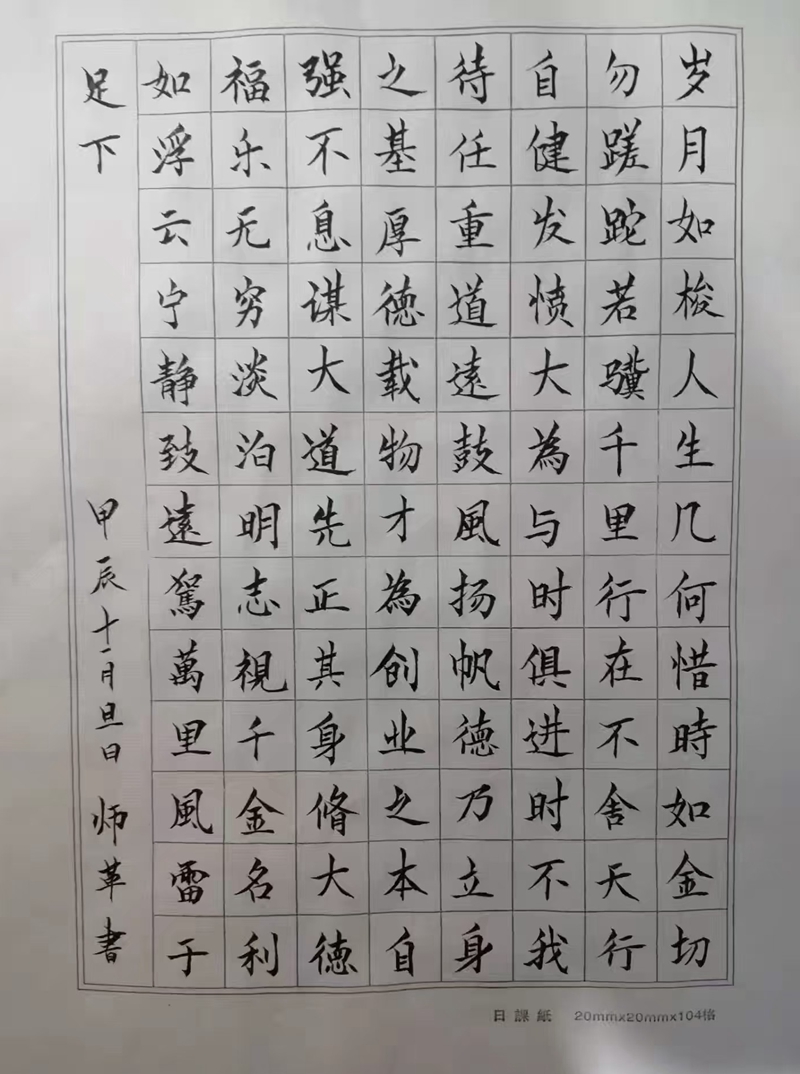 岁月如梭人生几何惜時如金切
勿蹉跎若骥千里行在不舍天行
自健发愤大為与时俱进时不我
待任重道遠鼓風扬帆德乃立身
之基厚德载物才為创业之本自
强不息谋大道先正其身脩大德
福乐无穷淡泊明志視千金名利
如浮云宁静致遠駕萬里風雷于
足下
甲辰十一月旦日 师革書
日課紙 20mmx20mmx104格